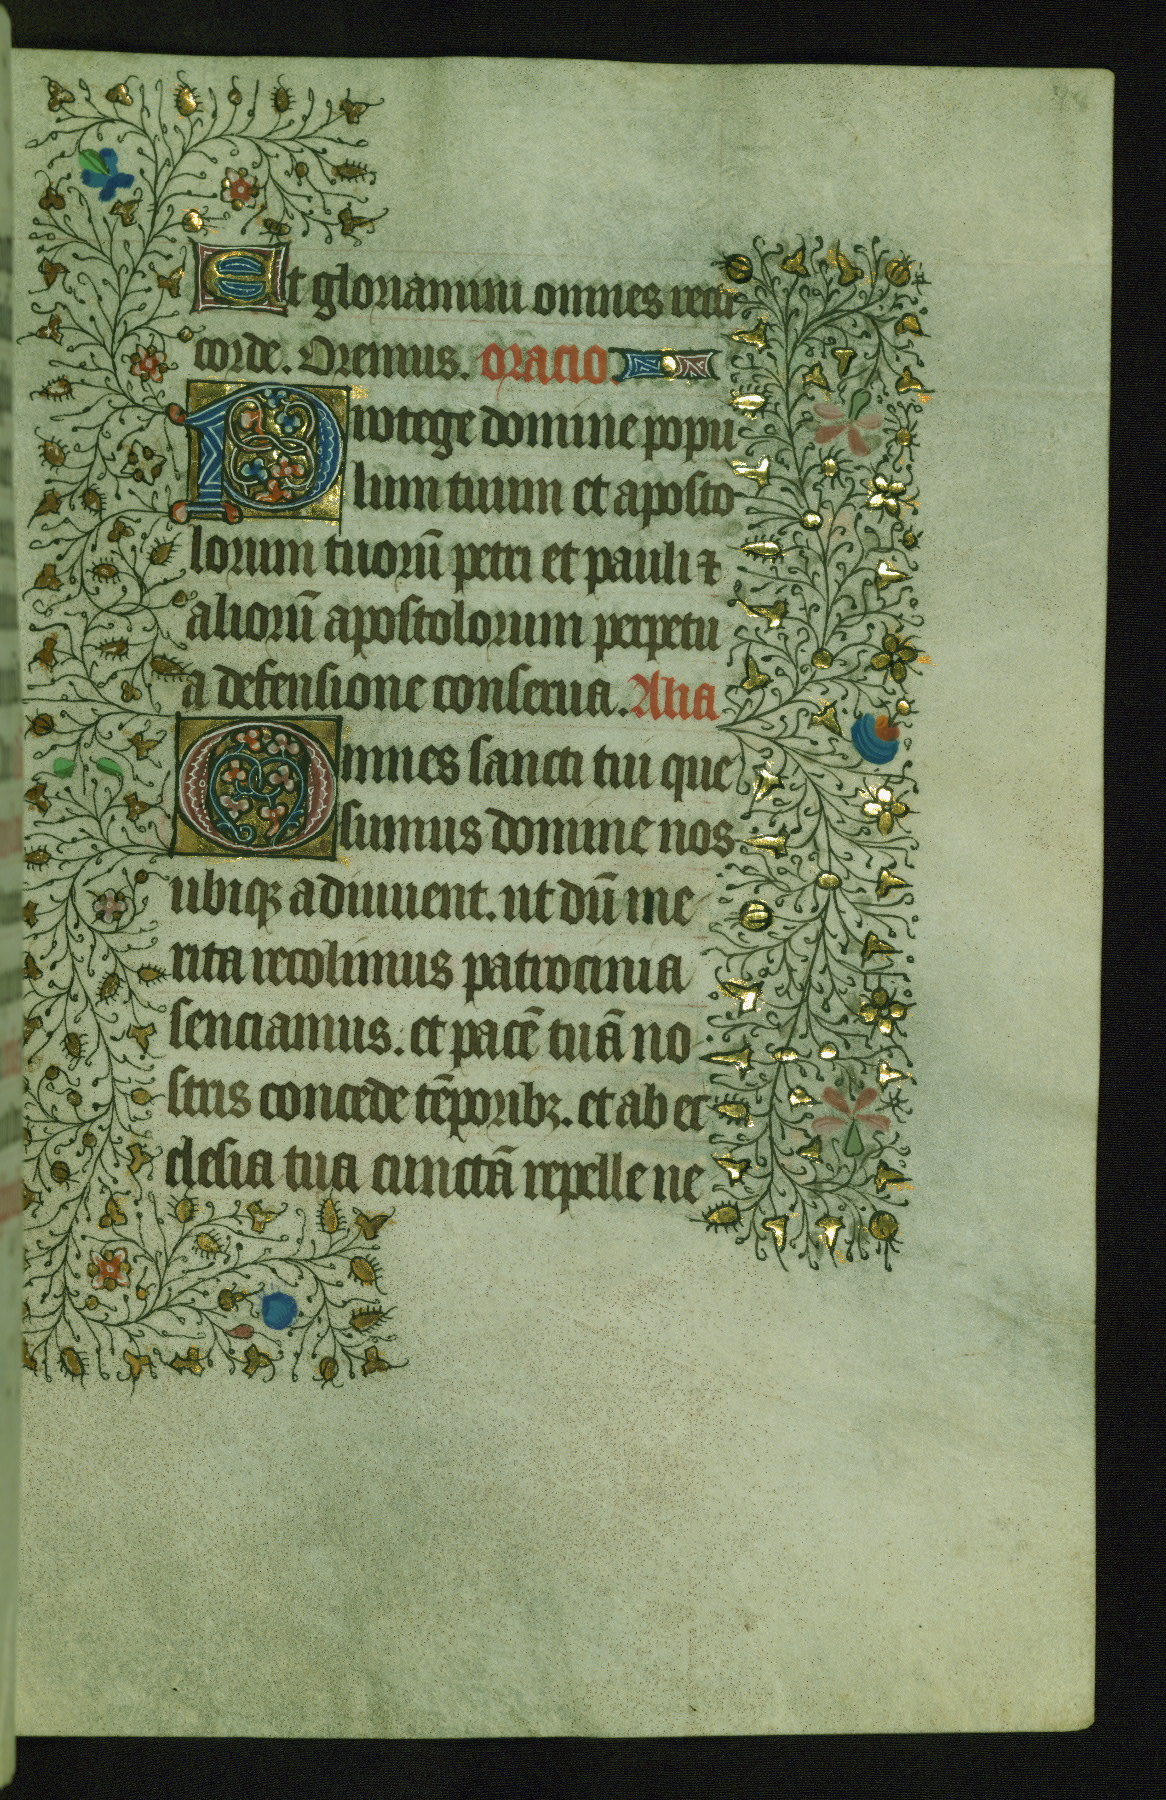 Et gloriamini omnes recti
corde. Oremus. oracio.
Protege domine popu
lum tuum et aposto
lorum tuorū petri et pauli ⁊
aliorū apostolorum perpetu
a defensione conserua. Alia
Omnes sancti tui que
sumus domine nos
ubiqꝫ adiuuent. ut dū me
rita recolimus patrocinia
senciamus. et pacē tuā no
stris concede tēporibꝫ. et ab ec
clesia tua cunctā repelle ne